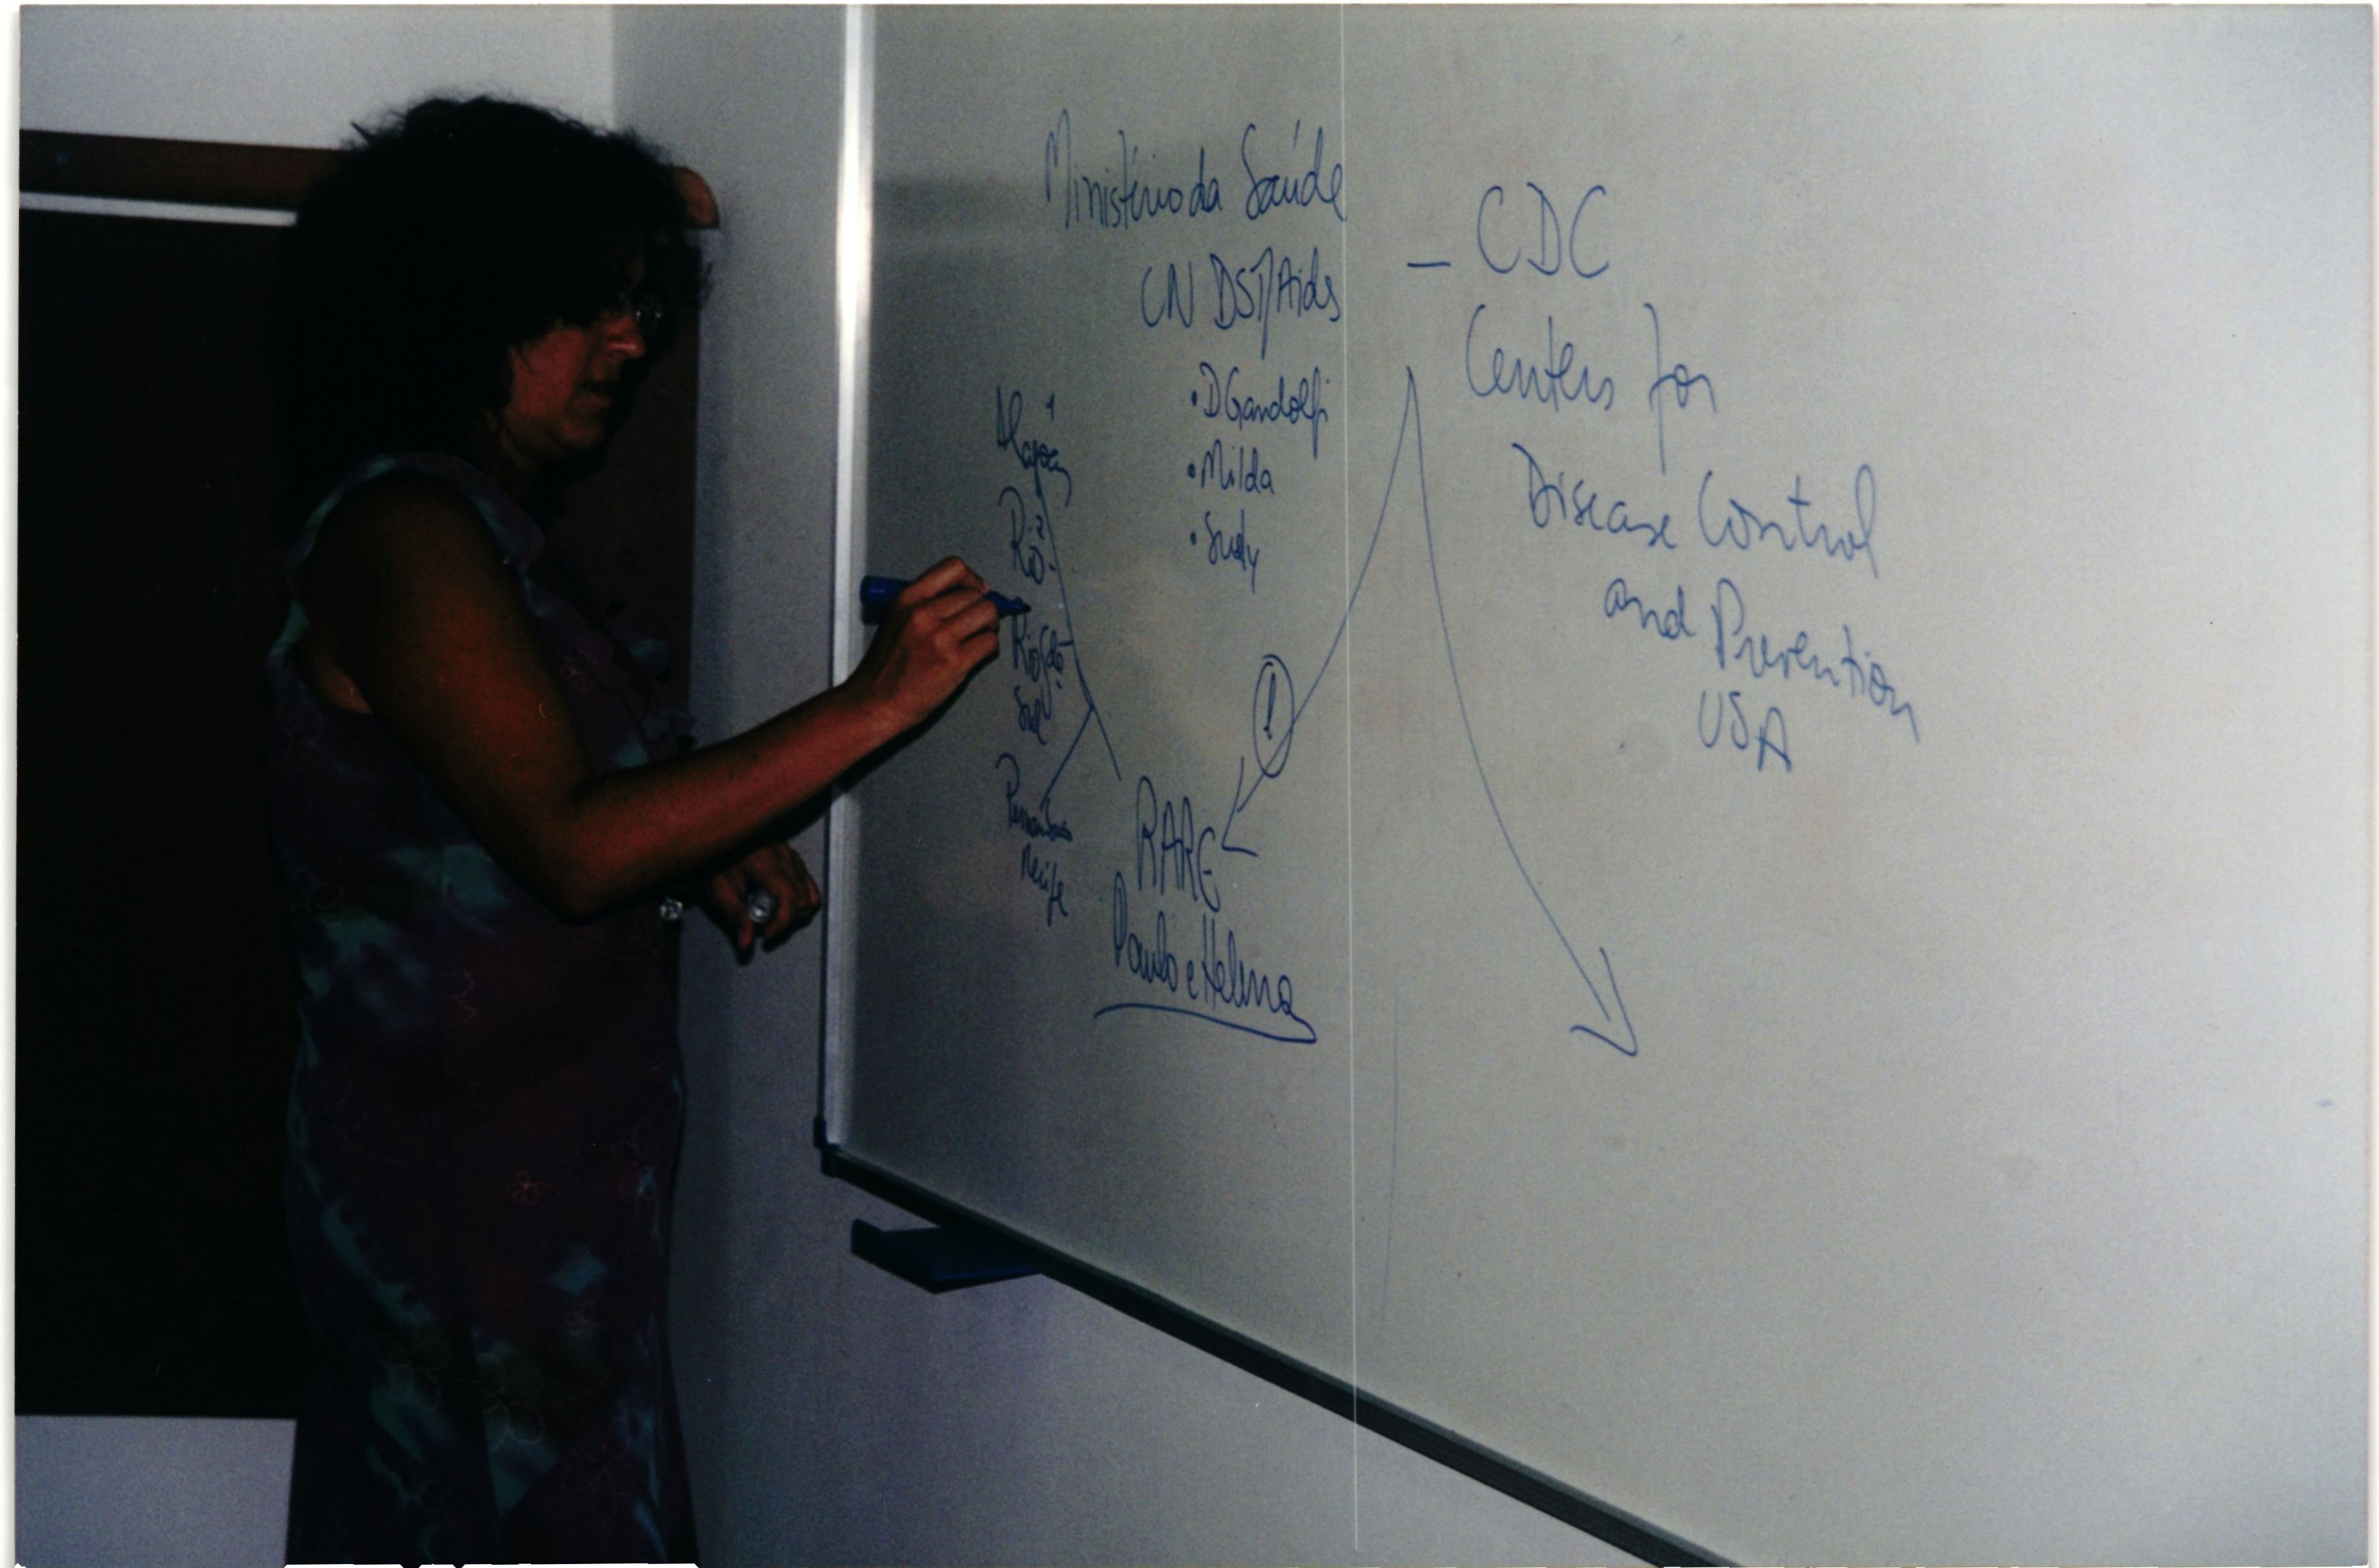 Ministério da Saúde
CN DST/Aids
• DGandolfi
• Milda
1
Alagoas
2
Rio-
Rio G do
Sul
Pernambuco
Recife
1
RARE
Paulo e Helena
– CDC
Centers for
Disease Control
and Prevention
USA